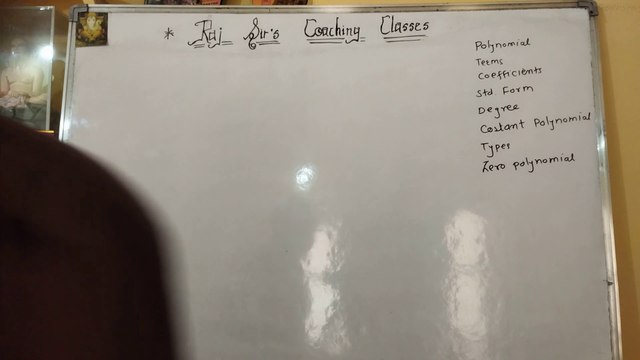 * Raj Sir's Coaching Classes
Polynomial
Terms
Coefficients
Std Form
Degree
Costant Polynomial
Types
Zero polynomial